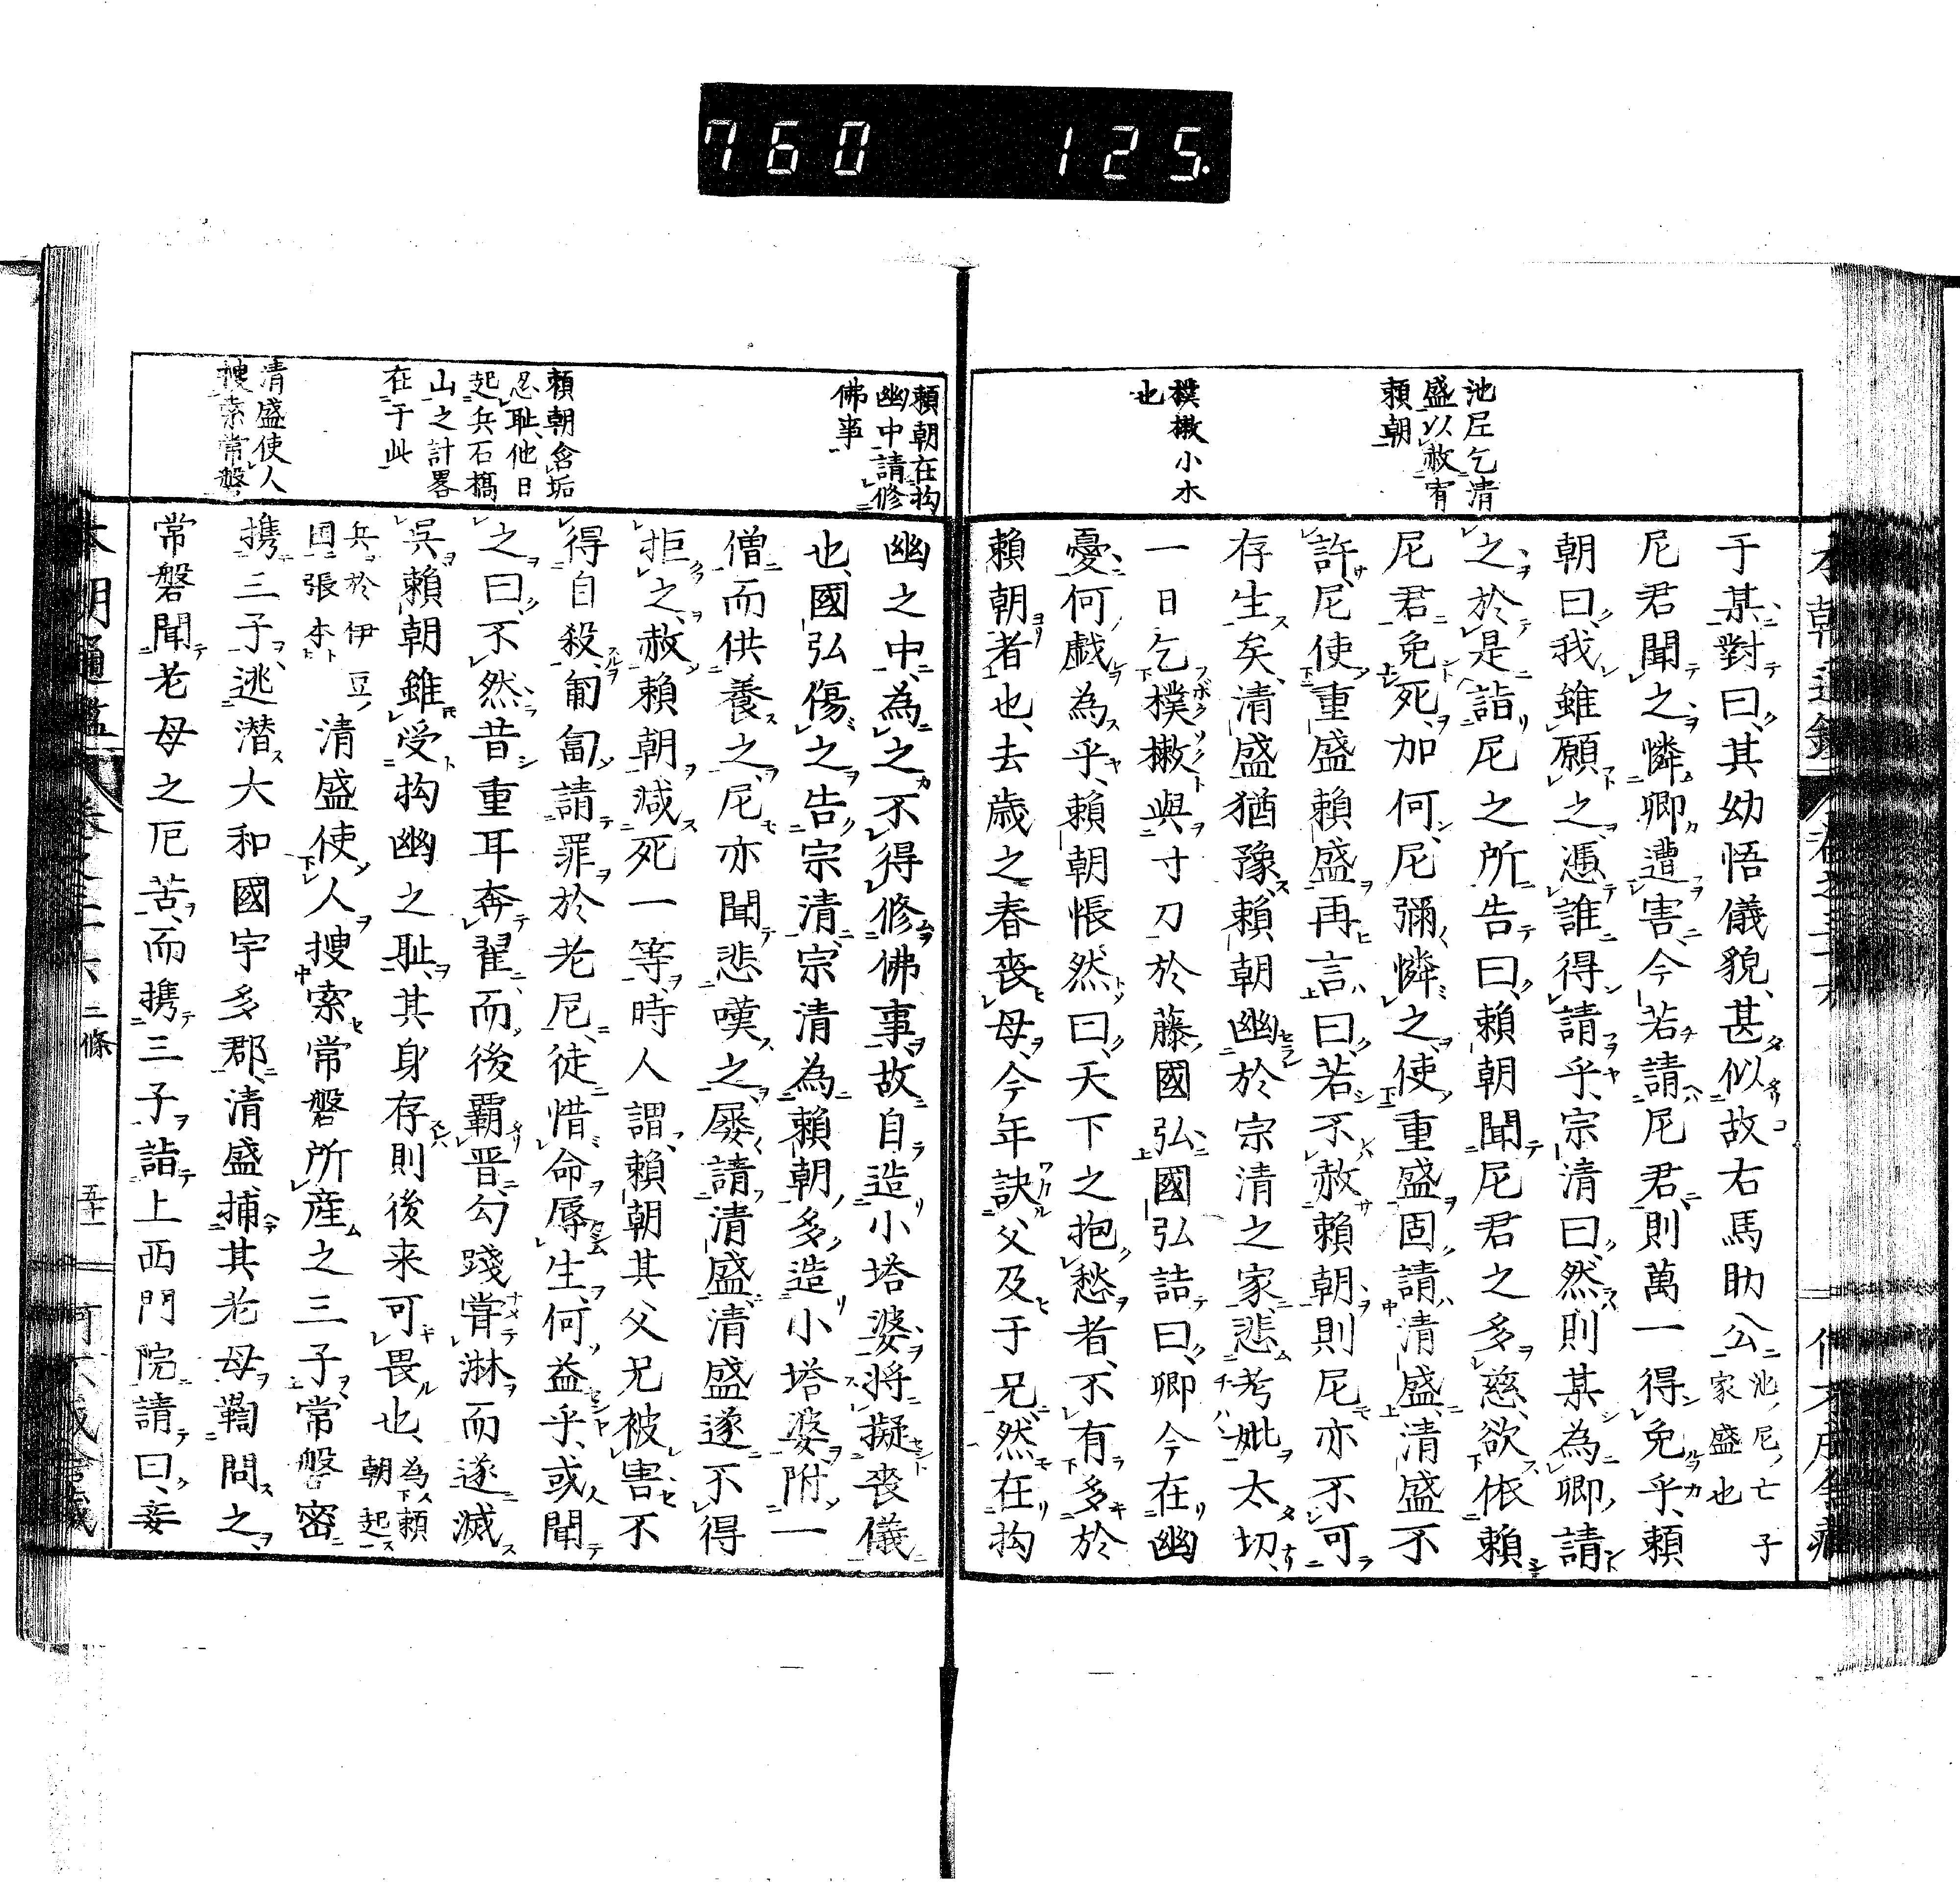 760 125.
池尼乞清
盛以赦宥
頼朝
樸樕小木
也
于某對曰其幼悟儀貌甚似故右馬助公池尼亡子家盛也
尼君聞之憐卿遭害今若請尼君則萬一得免乎頼
朝曰我雖願之憑誰得請乎宗清曰然則某為卿請
之於是詣尼之所告曰頼朝聞尼君之多慈欲依頼
尼君免死加何尼彌憐之使重盛固請清盛清盛不
許尼使重盛頼盛再言曰若不赦頼朝則尼亦不可
存生矣清盛猶豫頼朝幽於宗清之家悲考妣太切
一日乞樸樕與寸刀於藤國弘國弘詰曰卿今在幽
憂何戲為乎頼朝悵然曰天下之抱愁者不有多於
頼朝者也去歳之春喪母今年訣父及于兄然在拘
頼朝在拘
幽中請修
佛事
頼朝含垢
忍耻他日
起兵石橋
山之計畧
在于此
清盛使人
搜索常磐
幽之中為之不得修佛事故自造小塔婆將擬喪儀
也國弘傷之告宗清宗清為頼朝多造小塔婆附一
僧而供養之尼亦聞悲嘆之屡請清盛清盛遂不得
拒之赦頼朝減死一等時人謂頼朝其父兄被害不
得自殺匍匐請罪於老尼徒惜命辱生何益乎或聞
之曰不然昔重耳奔翟而後覇晋勾踐嘗淋而遂滅
呉頼朝雖受拘幽之耻其身存則後来可畏也為頼朝起
兵於伊豆國張本清盛使人搜索常磐所産之三子常磐密
携三子逃潜大和國宇多郡清盛捕其老母鞫問之
常磐聞老母之厄苦而携三子詣上西門院請曰妾
本朝通鑑 卷之三十六 二條 五十一